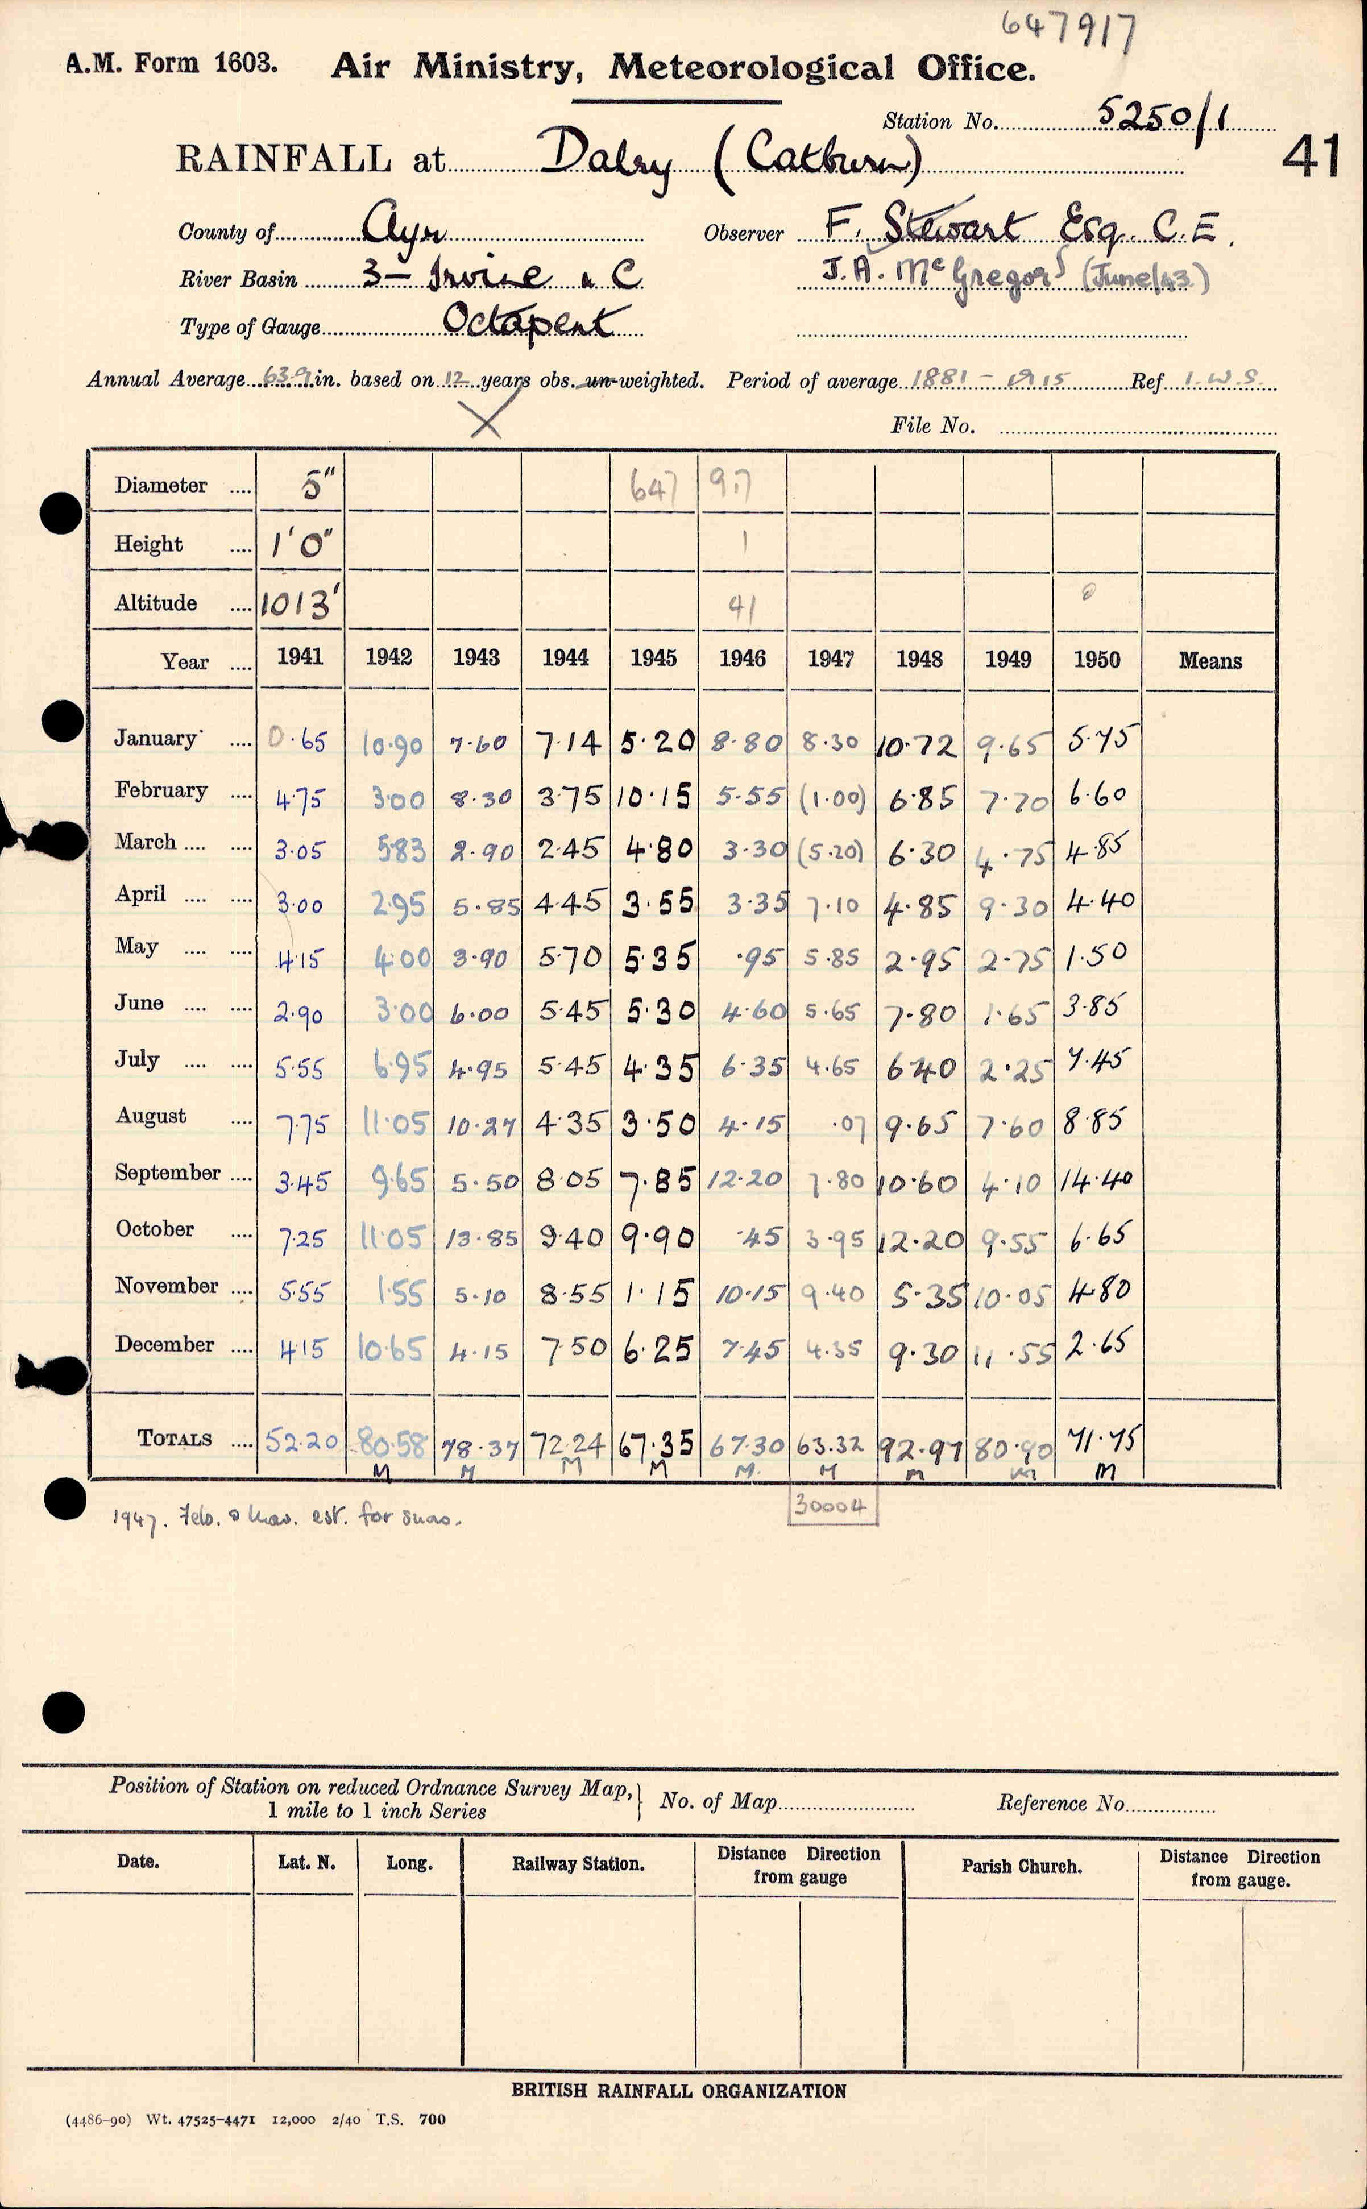 647917
A.M. Form 1603. Air Ministry, Meteorological Office.
Station No. 5250/1
41
RAINFALL at Dalry (Catburn)
County of Ayr Observer F. Stewart Esq. C.E.
River Basin 3 — Irvine & C J.A. McGregor (June/43)
Type of Gauge Octapent
Annual Average 63.9 in. based on 12 years obs. un-weighted. Period of average 1881 - 1915 Ref I.W.S.
File No.
Diameter .... 5" 647 917
Height .... 1'0" 1
Altitude .... 1013' 41 0
Year .... 1941 1942 1943 1944 1945 1946 1947 1948 1949 1950 Means
January .... 0.65 10.90 7.60 7.14 5.20 8.80 8.30 10.72 9.65 5.75
February .... 4.75 3.00 8.30 3.75 10.15 5.55 (1.00) 6.85 7.70 6.60
March .... .... 3.05 5.83 2.90 2.45 4.80 3.30 (5.20) 6.30 4.75 4.85
April .... .... 3.00 2.95 5.85 4.45 3.55 3.35 7.10 4.85 9.30 4.40
May .... .... 4.15 4.00 3.90 5.70 5.35 .95 5.85 2.95 2.75 1.50
June .... .... 2.90 3.00 6.00 5.45 5.30 4.60 5.65 7.80 1.65 3.85
July .... .... 5.55 6.95 4.95 5.45 4.35 6.35 4.65 6.40 2.25 7.45
August .... 7.75 11.05 10.27 4.35 3.50 4.15 .07 9.65 7.60 8.85
September .... 3.45 9.65 5.50 8.05 7.85 12.20 7.80 10.60 4.10 14.40
October .... 7.25 11.05 13.85 9.40 9.90 .45 3.95 12.20 9.55 6.65
November .... 5.55 1.55 5.10 8.55 1.15 10.15 9.40 5.35 10.05 4.80
December .... 4.15 10.65 4.15 7.50 6.25 7.45 4.35 9.30 11.55 2.65
TOTALS .... 52.20 80.58 78.37 72.24 67.35 67.30 63.32 92.97 80.90 71.75
M M M M M M M M M
1947. Feb. & Mar. est. for snow.
30004
Position of Station on reduced Ordnance Survey Map, 1 mile to 1 inch Series } No. of Map Reference No.
Date. Lat. N. Long. Railway Station. Distance Direction from gauge Parish Church. Distance Direction from gauge.
BRITISH RAINFALL ORGANIZATION
(4486-90) Wt. 47525-4471 12,000 2/40 T.S. 700